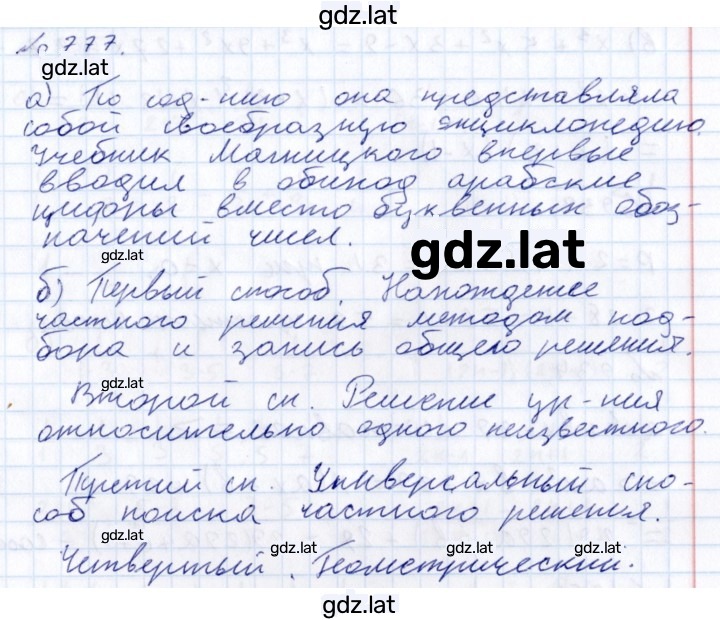 gdz.lat
№ 777.
gdz.lat
а) По сод-нию она представляла
собой своеобразную энциклопедию.
Учебник Магницкого впервые
вводил в обиход арабские
цифры вместо буквенных обоз-
начений чисел.
gdz.lat
gdz.lat
б) Первый способ. Нахождение
частного решения методом под-
бора и запись общего решения.
gdz.lat
Второй сп. Решение ур-ния
относительно одного неизвестного.
Третий сп. Универсальный спо-
соб поиска частного решения.
gdz.lat
Четвертый. Геометрический.
gdz.lat gdz.lat gdz.lat
gdz.lat